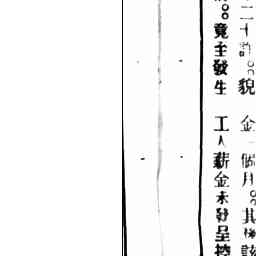 二十[?]。貌 金一個月。其後該
。竟至發生 工人薪金未發呈控